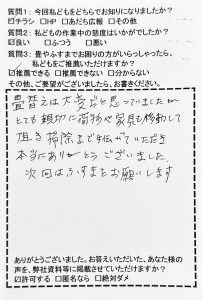 質問1: 今回私どもをどちらでお知りになりましたか？
☑チラシ □HP □あだち広報 □その他
質問2: 私どもの作業中の態度はいかがでしたか？
☑良い □ふつう □悪い
質問3: 畳やふすまでお困りの方がいらっしゃったら、
私どもをご推薦いただけますか？
☑推薦できる □推薦できない □分からない
その他、ご要望がございましたら、お書きください。
畳替えは大変だと思っていましたが
とても親切に荷物や家具も移動して
掃除まで手伝がっていただき
本当にありがとうございました。
次回はふすまをお願いします
ありがとうございました。お答えいただいた、あなた様の
声を、弊社資料等に掲載させていただけますか？
☑許可する □匿名なら □絶対ダメ